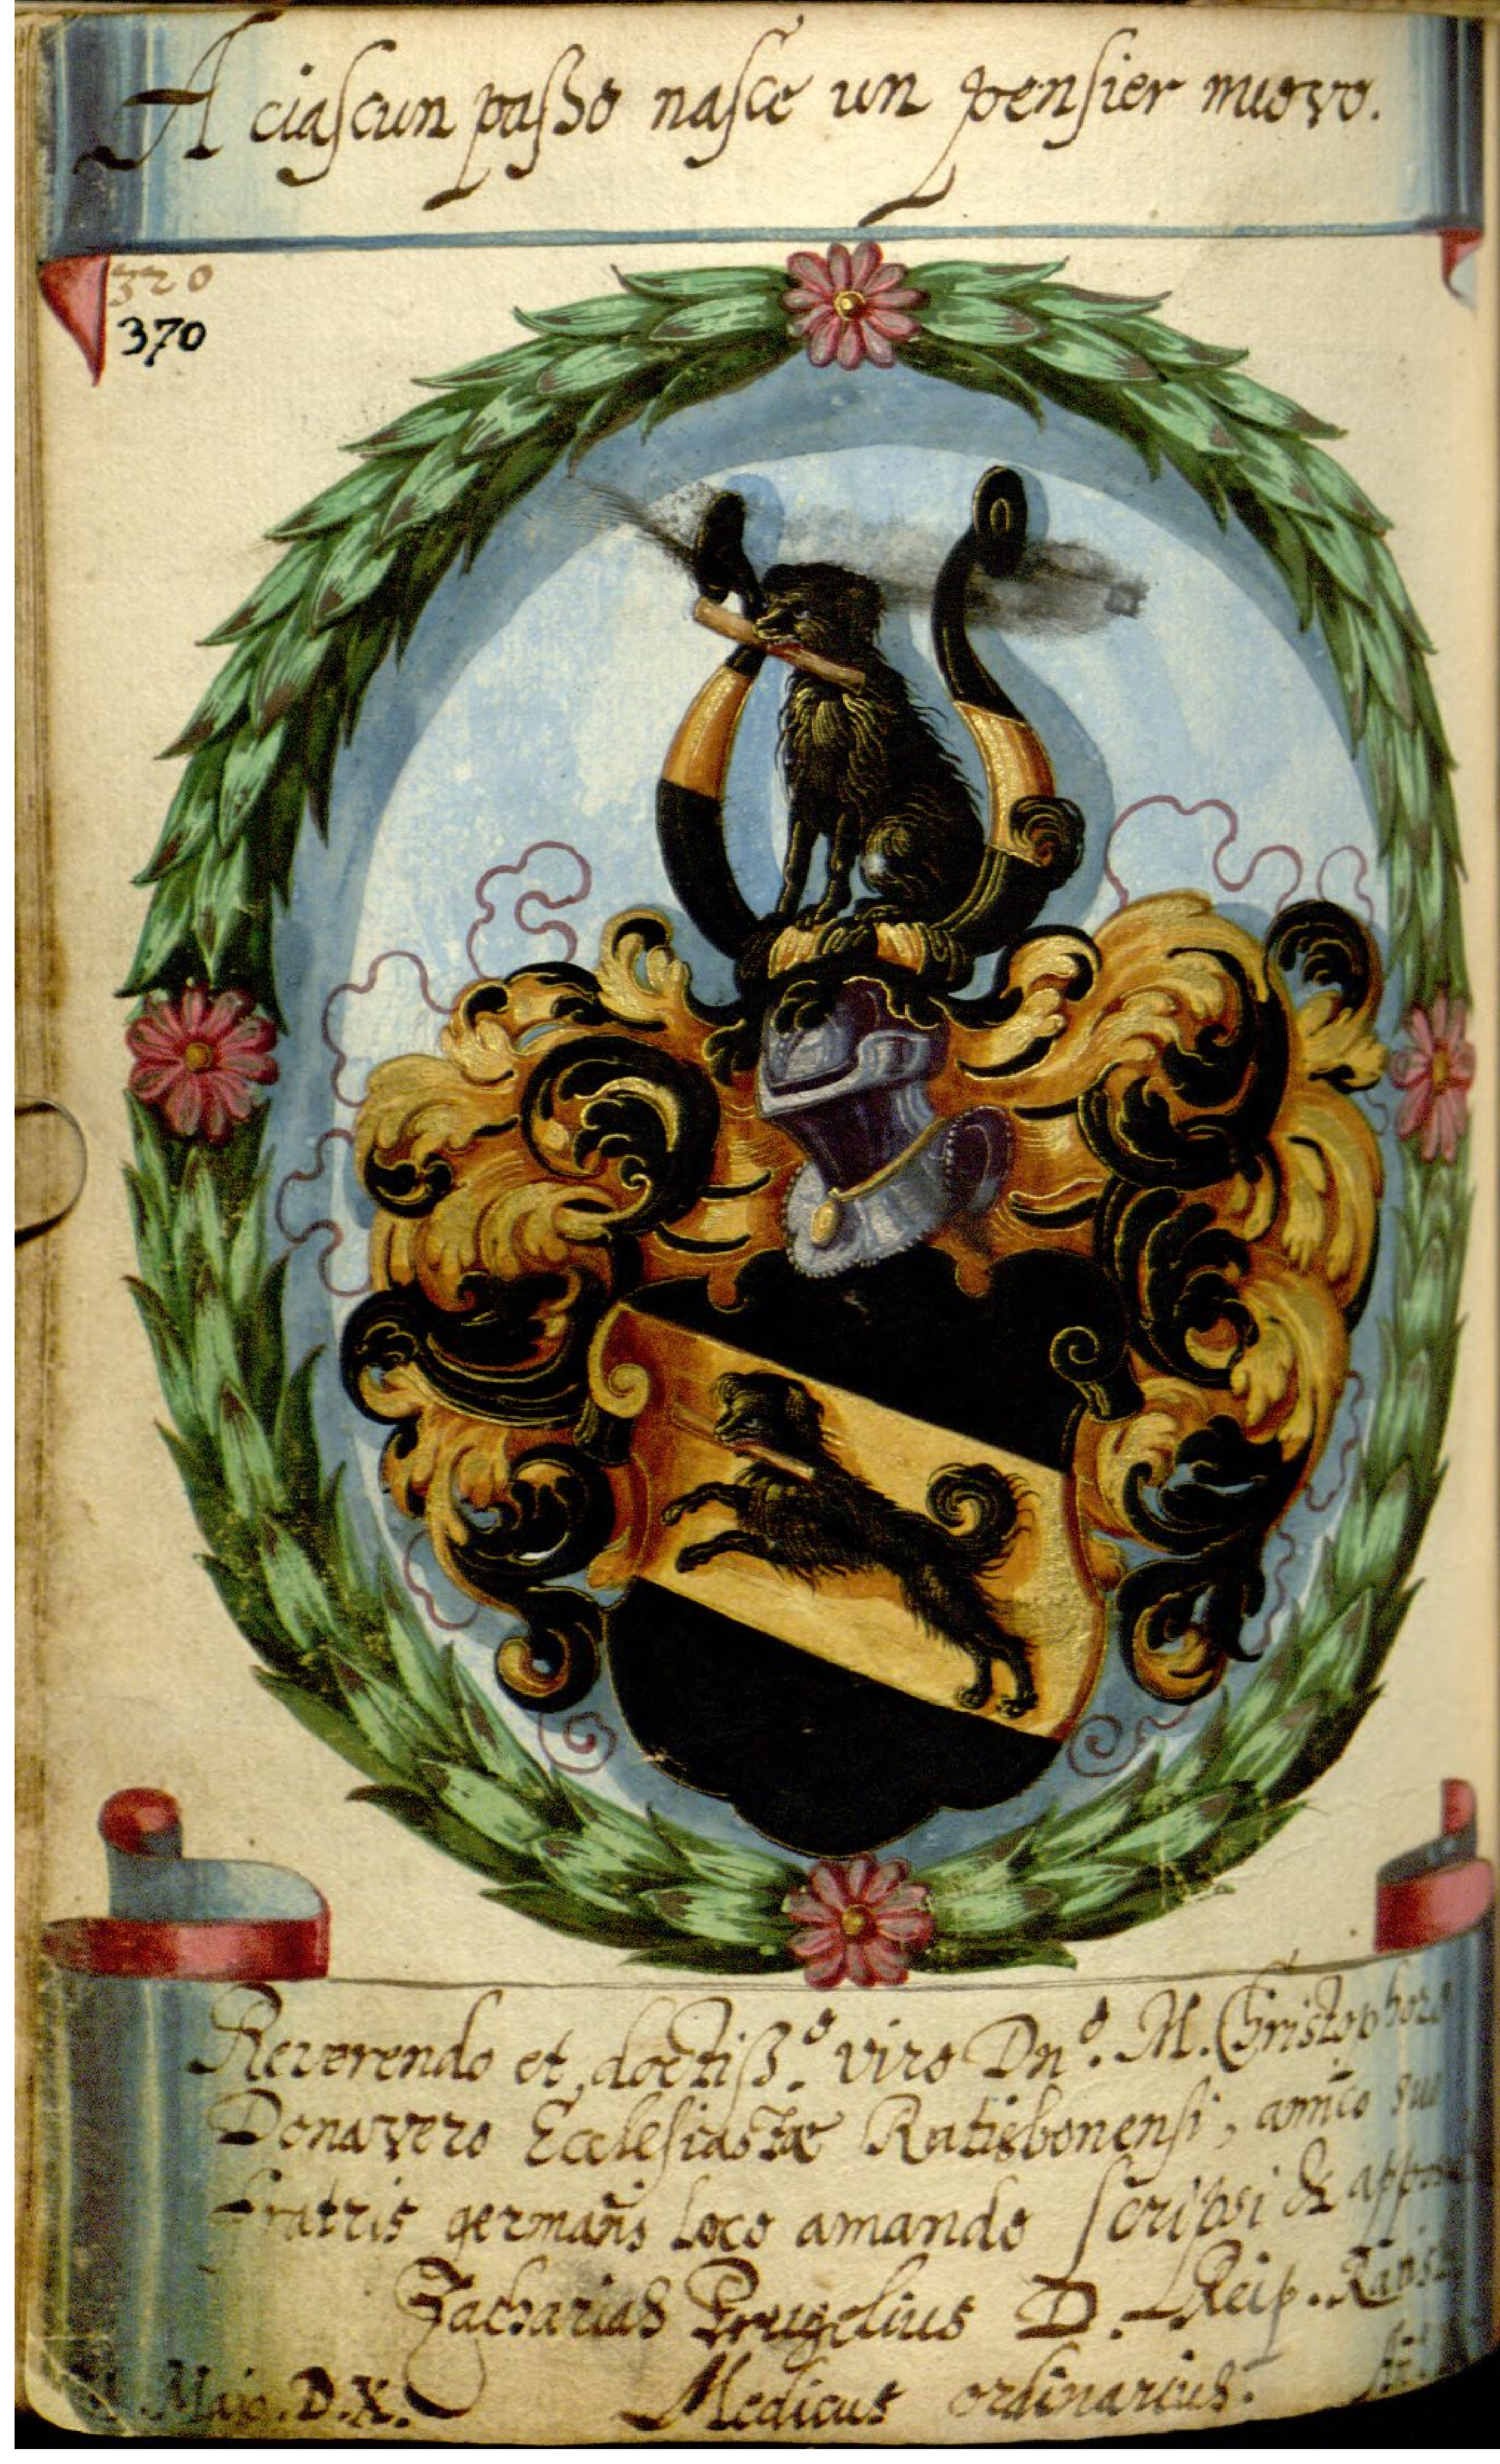 A ciaſcun paſso naſce un penſier nuovo.
320
370
Reverendo et doctiß.º viro Dnº. M. Christophoro
Donavero Ecclesiastæ Ratisbonensi, amico suo
fratris germani loco amando scripsi &
Zacharias D. Reip.
Medicus ordinarius.
Maio. D. X.